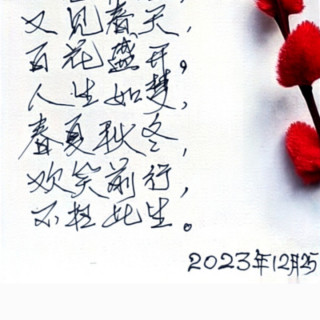 又见春天，
百花盛开，
人生如梦，
春夏秋冬，
欢笑前行，
不枉此生。
2023年12月25